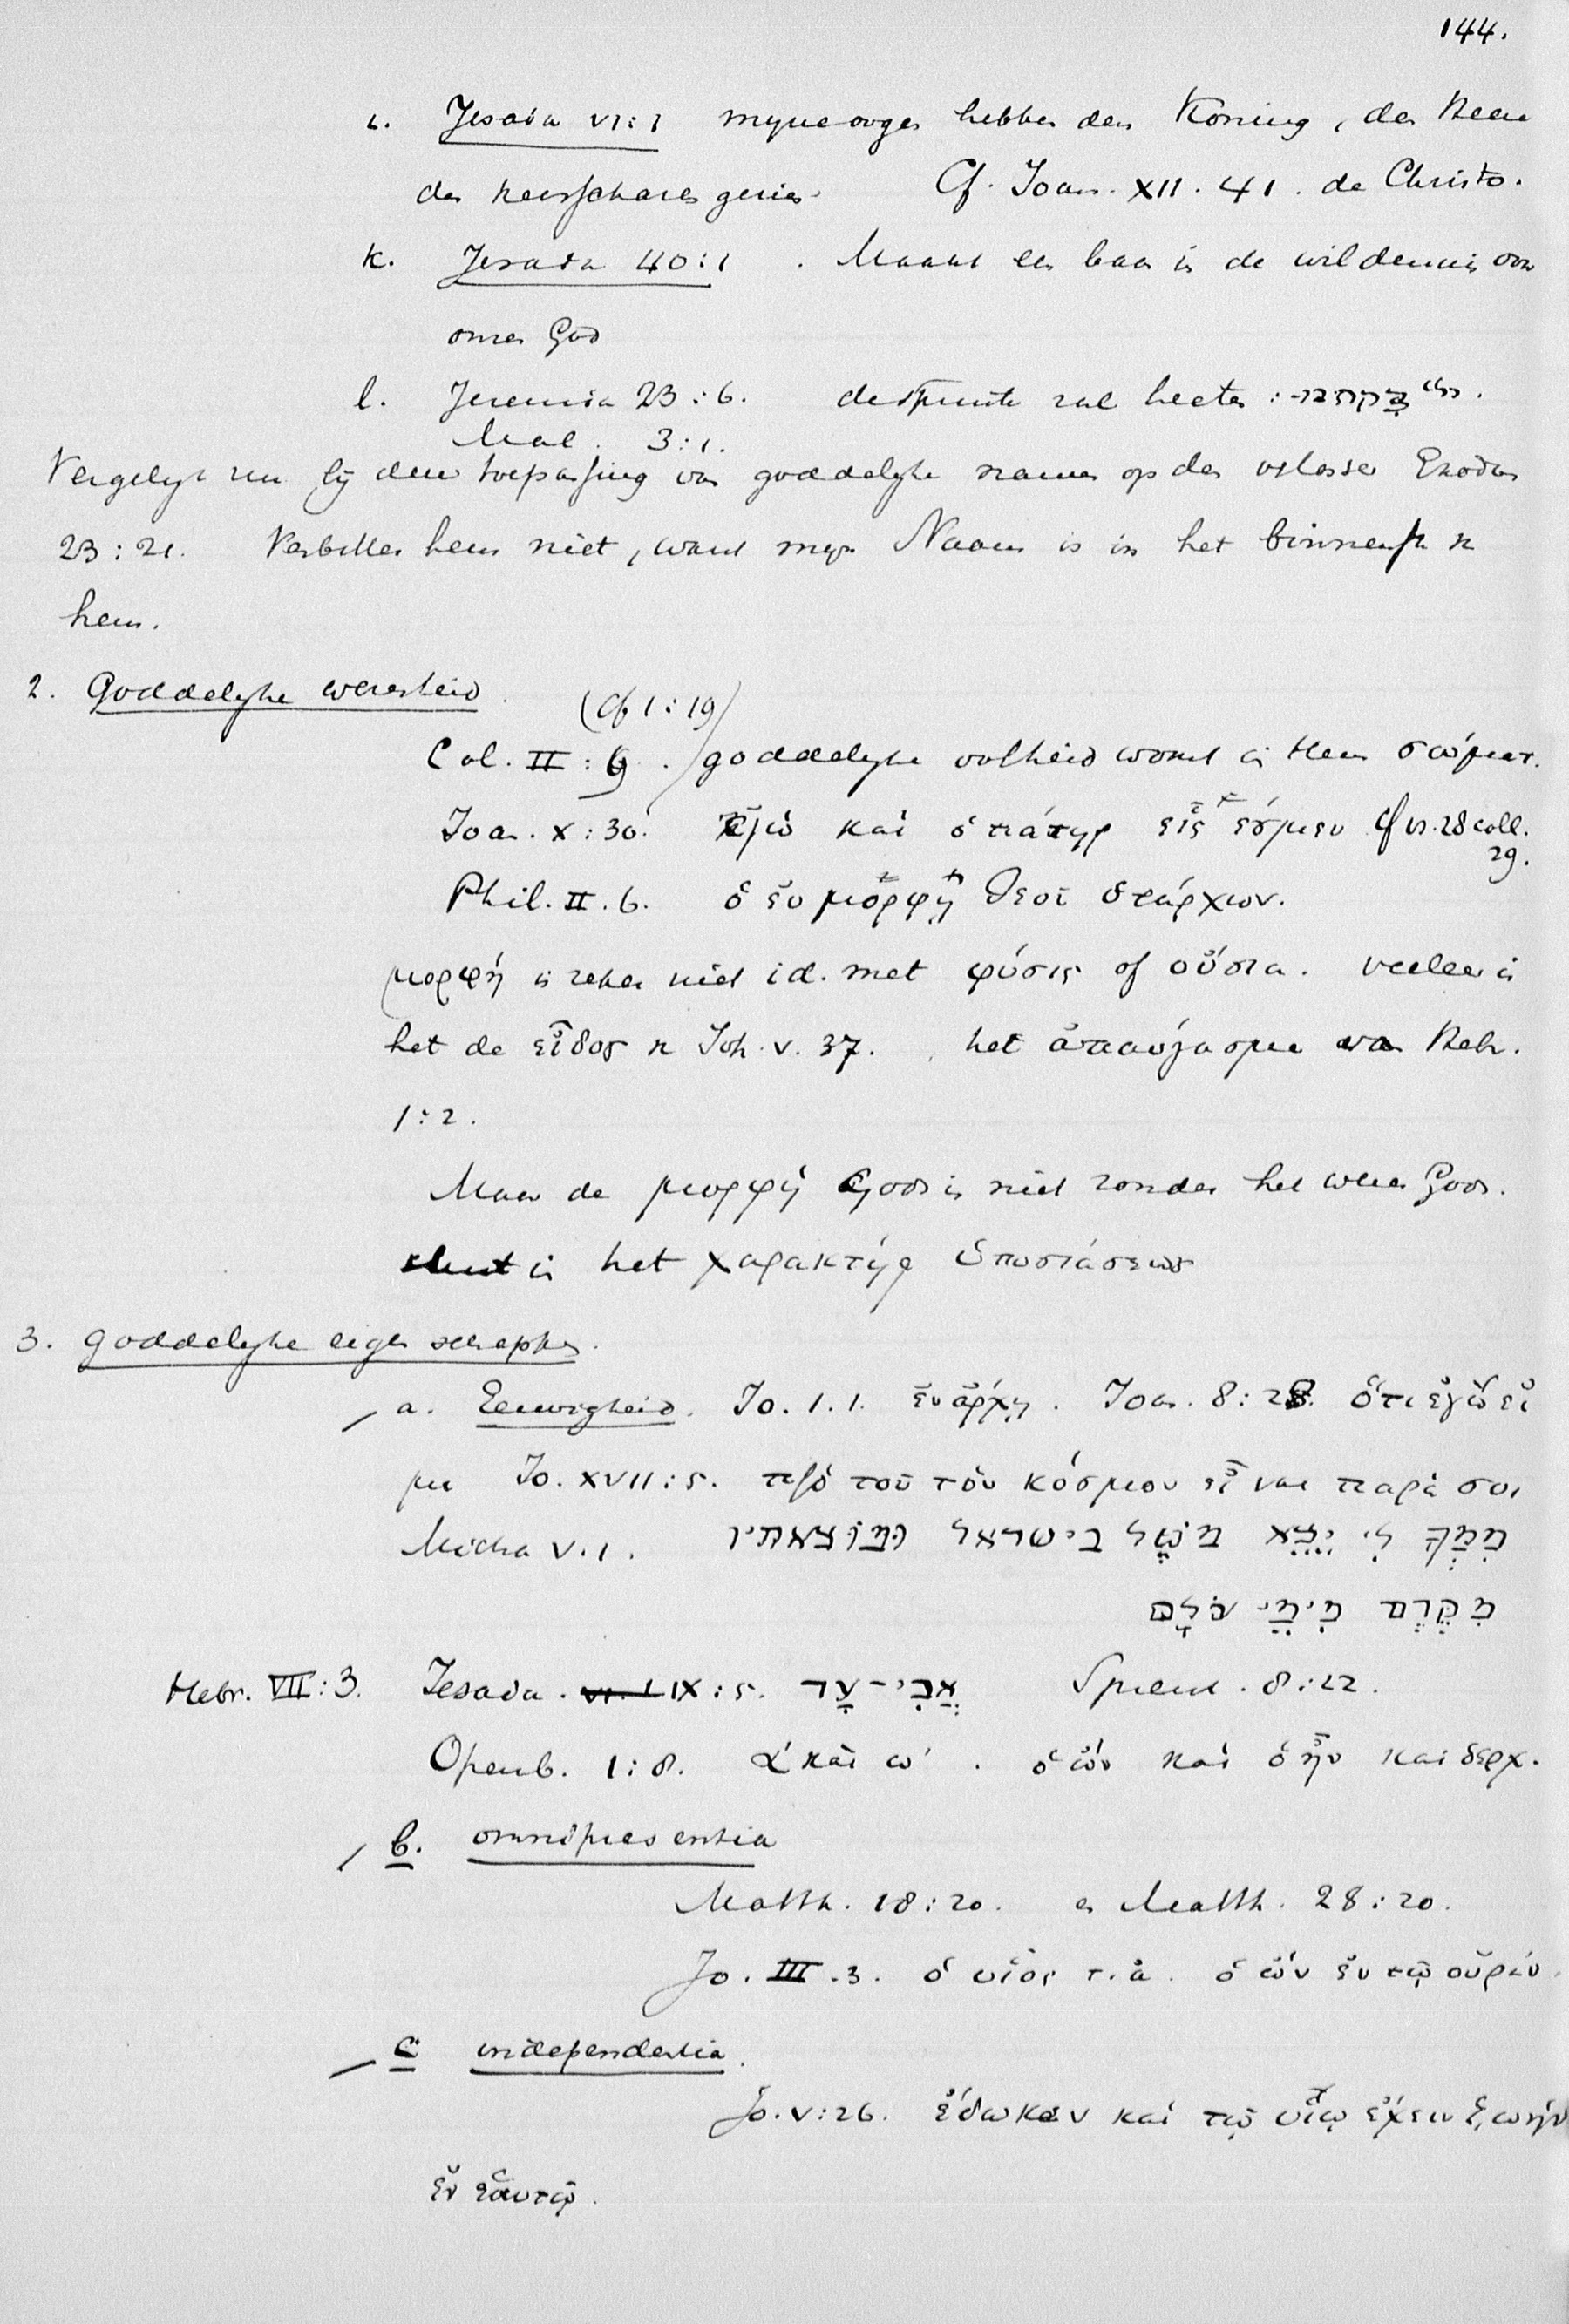 144.
i. Jesaia VI:1 myne oogen hebben den Koning, den Heere
der heerscharen gezien. Cf. Joan. XII. 41. de Christo.
k. Jesaia 40:1. Maakt een baan in de wildernis voor
onzen God
l. Jeremia 23:6. de spruite zal heeten:
Mal. 3:1.
Vergelyk nu by deze toepassing van goddelyke namen op den verlosser Exodus
23:21. Verbitter hem niet, want myn Naam is in het binnenste v
hem.
2. Goddelyke wezenheid.
(Cf 1:19)
Col. II:9. goddelyke volheid woont in Hem σώματ.
Joa. X:30. ἐγὼ καὶ ὁ πάτηρ εἷς ἐσμεν Cf vs. 28 coll.
29.
Phil. II. 6. ὁ ἐν μορφῇ θεοῦ ὑπάρχων.
μορφή is zeker niet id. met φύσις of οὔσια. veeleer is
het de εἶδος v Joh. V. 37. het ἀπαύγασμα van Hebr.
1:2.
Maar de μορφή Gods is niet zonder het wezen Gods.
is het χαρακτήρ ὑποστάσεως
3. goddelyke eigenschappen.
a. Eeuwigheid. Jo. 1.1. ἐν ἄρχῃ. Joa. 8:28. ὅτι ἐγὼ εἰ
μι Jo. XVII:5. πρὸ τοῦ τὸν κόσμον εἶναι παρὰ σοι
Micha V.1. מִמְּךָ לִי יֵצֵא מוֹשֵׁל בישראל וּמוֹצָאתיו
מִקֶּדֶם מִימֵי עֹלָם
Hebr. VII:3. Jesaia. VI. 1 IX:5. אֲבִי־עַד Spreuk. 8:22.
Openb. 1:8. α καὶ ω. ὁ ὢν καὶ ὁ ἦν καὶ ὁ ερχ.
b. omnipresentia
Matth. 18:20. en Matth. 28:20.
Jo. III.3. ὁ υἱὸς τ. ἀ. ὁ ὢν ἐν τῷ οὐράν.
c independentia.
Jo. V:26. ἔδωκεν καὶ τῷ υἱῷ ἔχειν ζωήν
ἐν ἑαυτῷ.